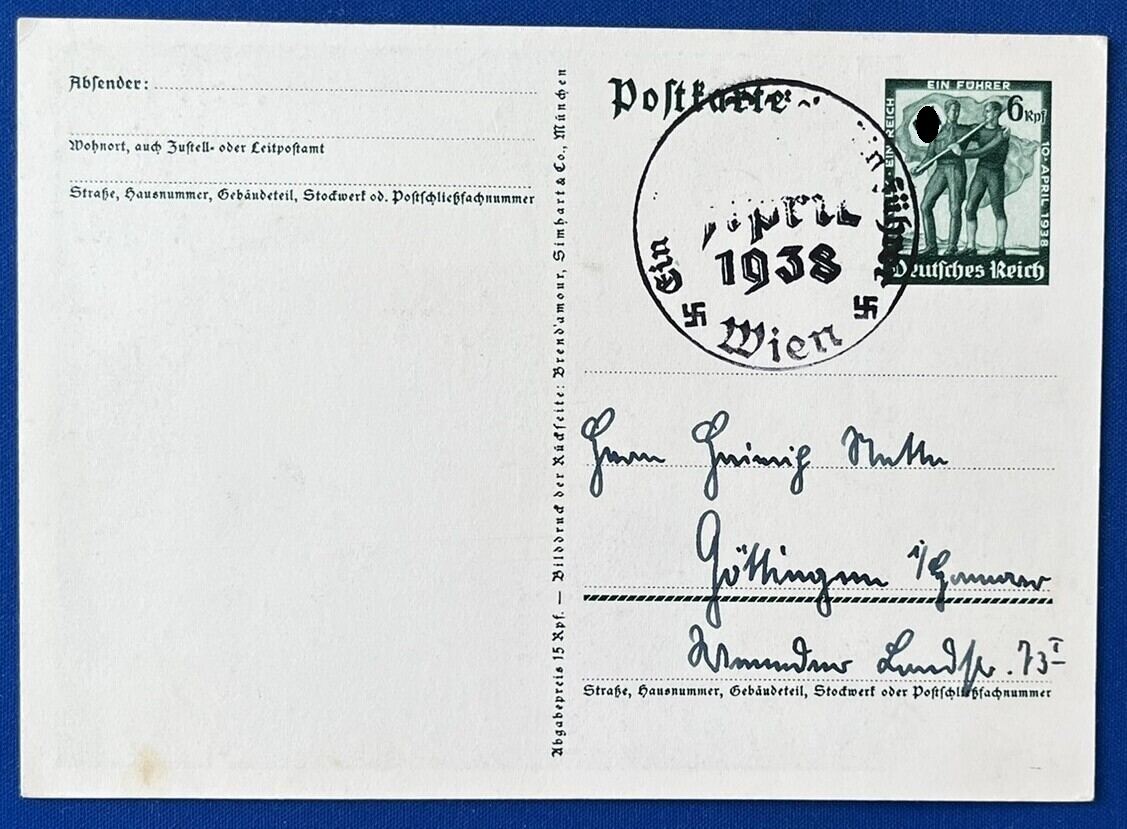 Absender:
Wohnort, auch Zustell- oder Leitpostamt
Straße, Hausnummer, Gebäudeteil, Stockwerk od. Postschließfachnummer
Abgabepreis 15 Rpf. — Bilddruck der Rückseite: Brend'amour, Simhart & Co., München
Postkarte
EIN REICH
EIN FÜHRER
10. APRIL 1938
6 Rpf
Deutsches Reich
Ein
April
1938
Wien
Herrn Heinrich
Göttingen i/Hannover
Weender Landstr. 73 I
Straße, Hausnummer, Gebäudeteil, Stockwerk oder Postschließfachnummer